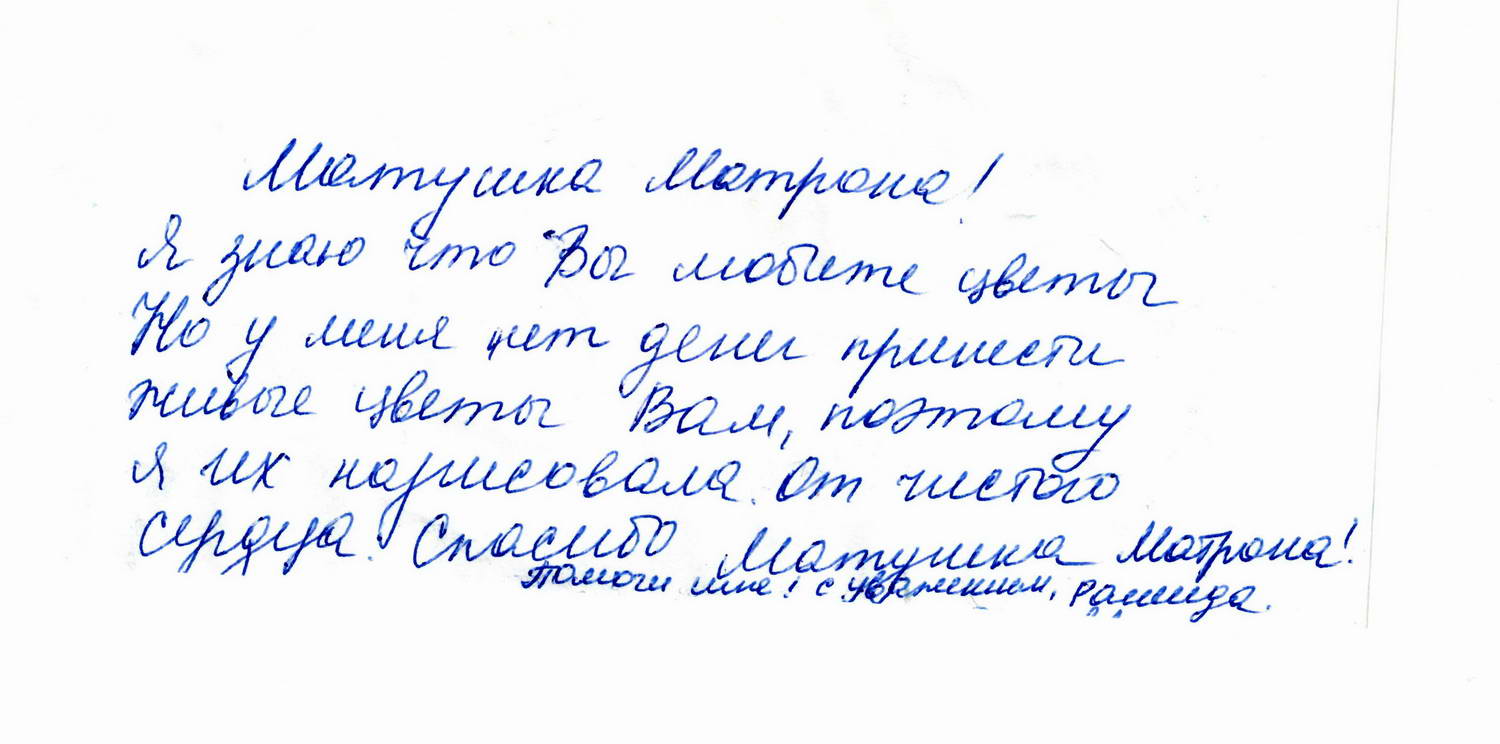 Матушка Матрона!
Я знаю что Вы любите цветы
Но у меня нет денег принести
живые цветы Вам, поэтому
я их нарисовала. От чистого
сердца. Спасибо Матушка Матрона!
Помоги мне! С уважением, Рашида.